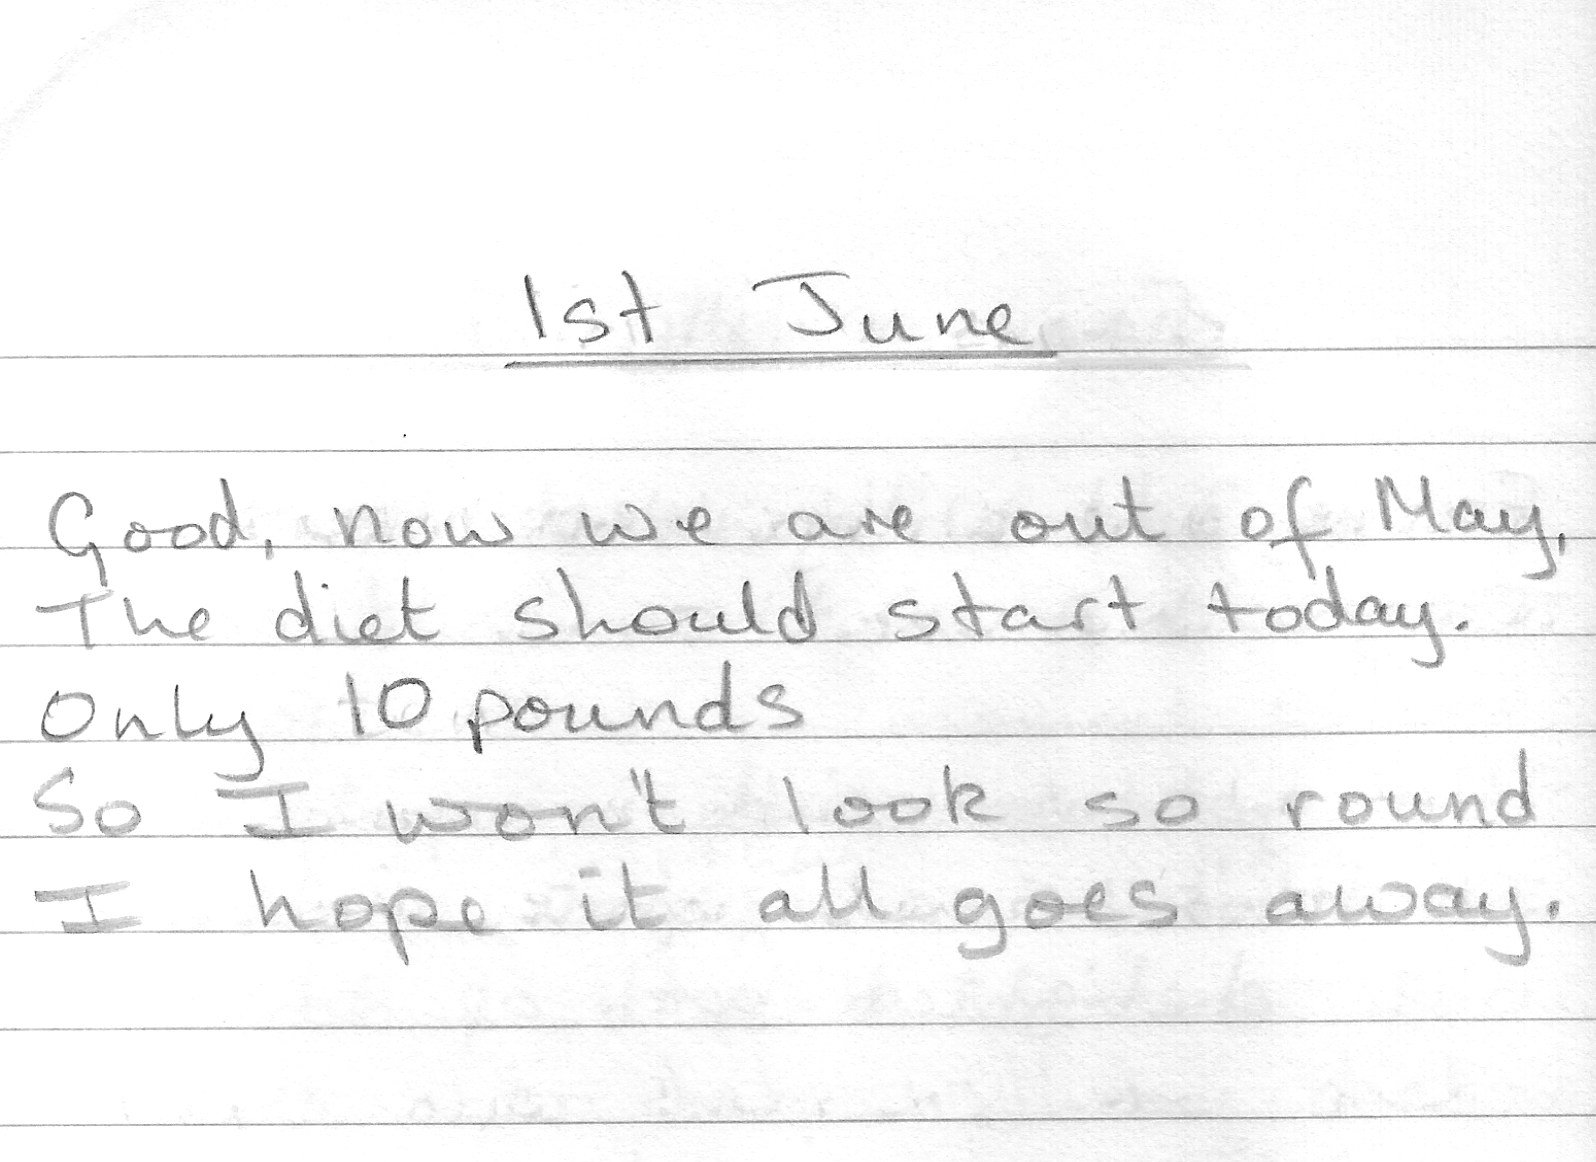 1st June
Good, now we are out of May,
The diet should start today.
Only 10 pounds
So I won't look so round
I hope it all goes away.